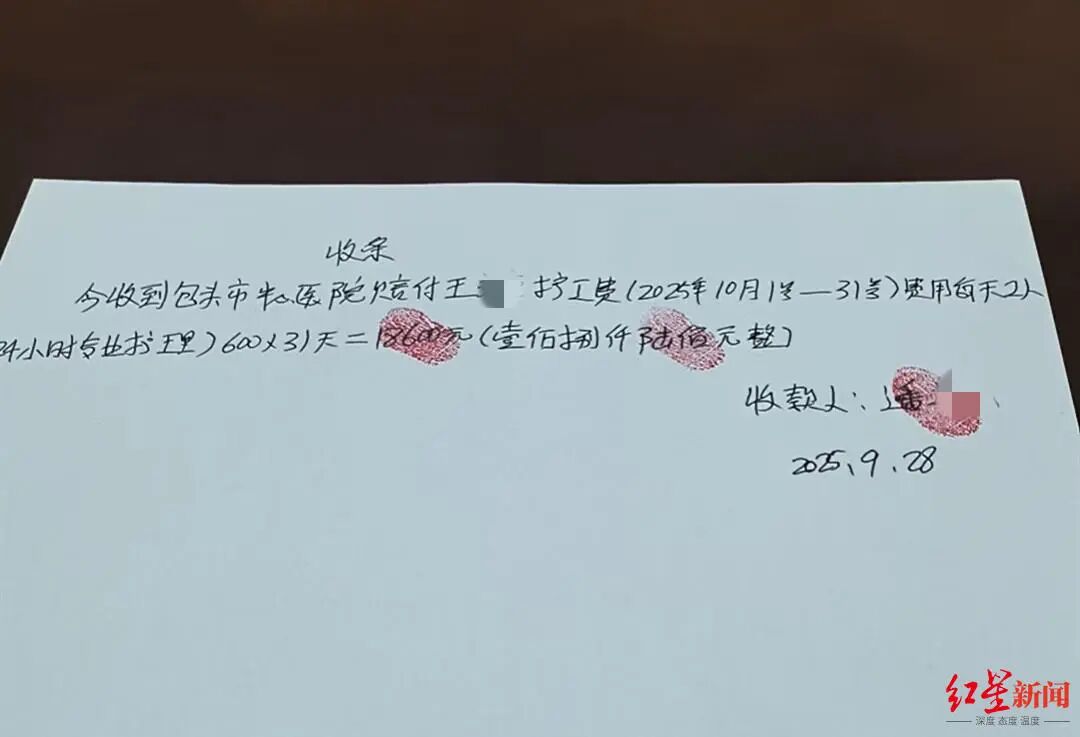 收条
今收到包头市中心医院赔付王 护工费(2025年10月1号—31号)费用每天2人
24小时专业护理)600×31天=18600元(壹佰捌仟陆佰元整)
收款人:
2025、9、28
红星新闻
深度 态度 温度